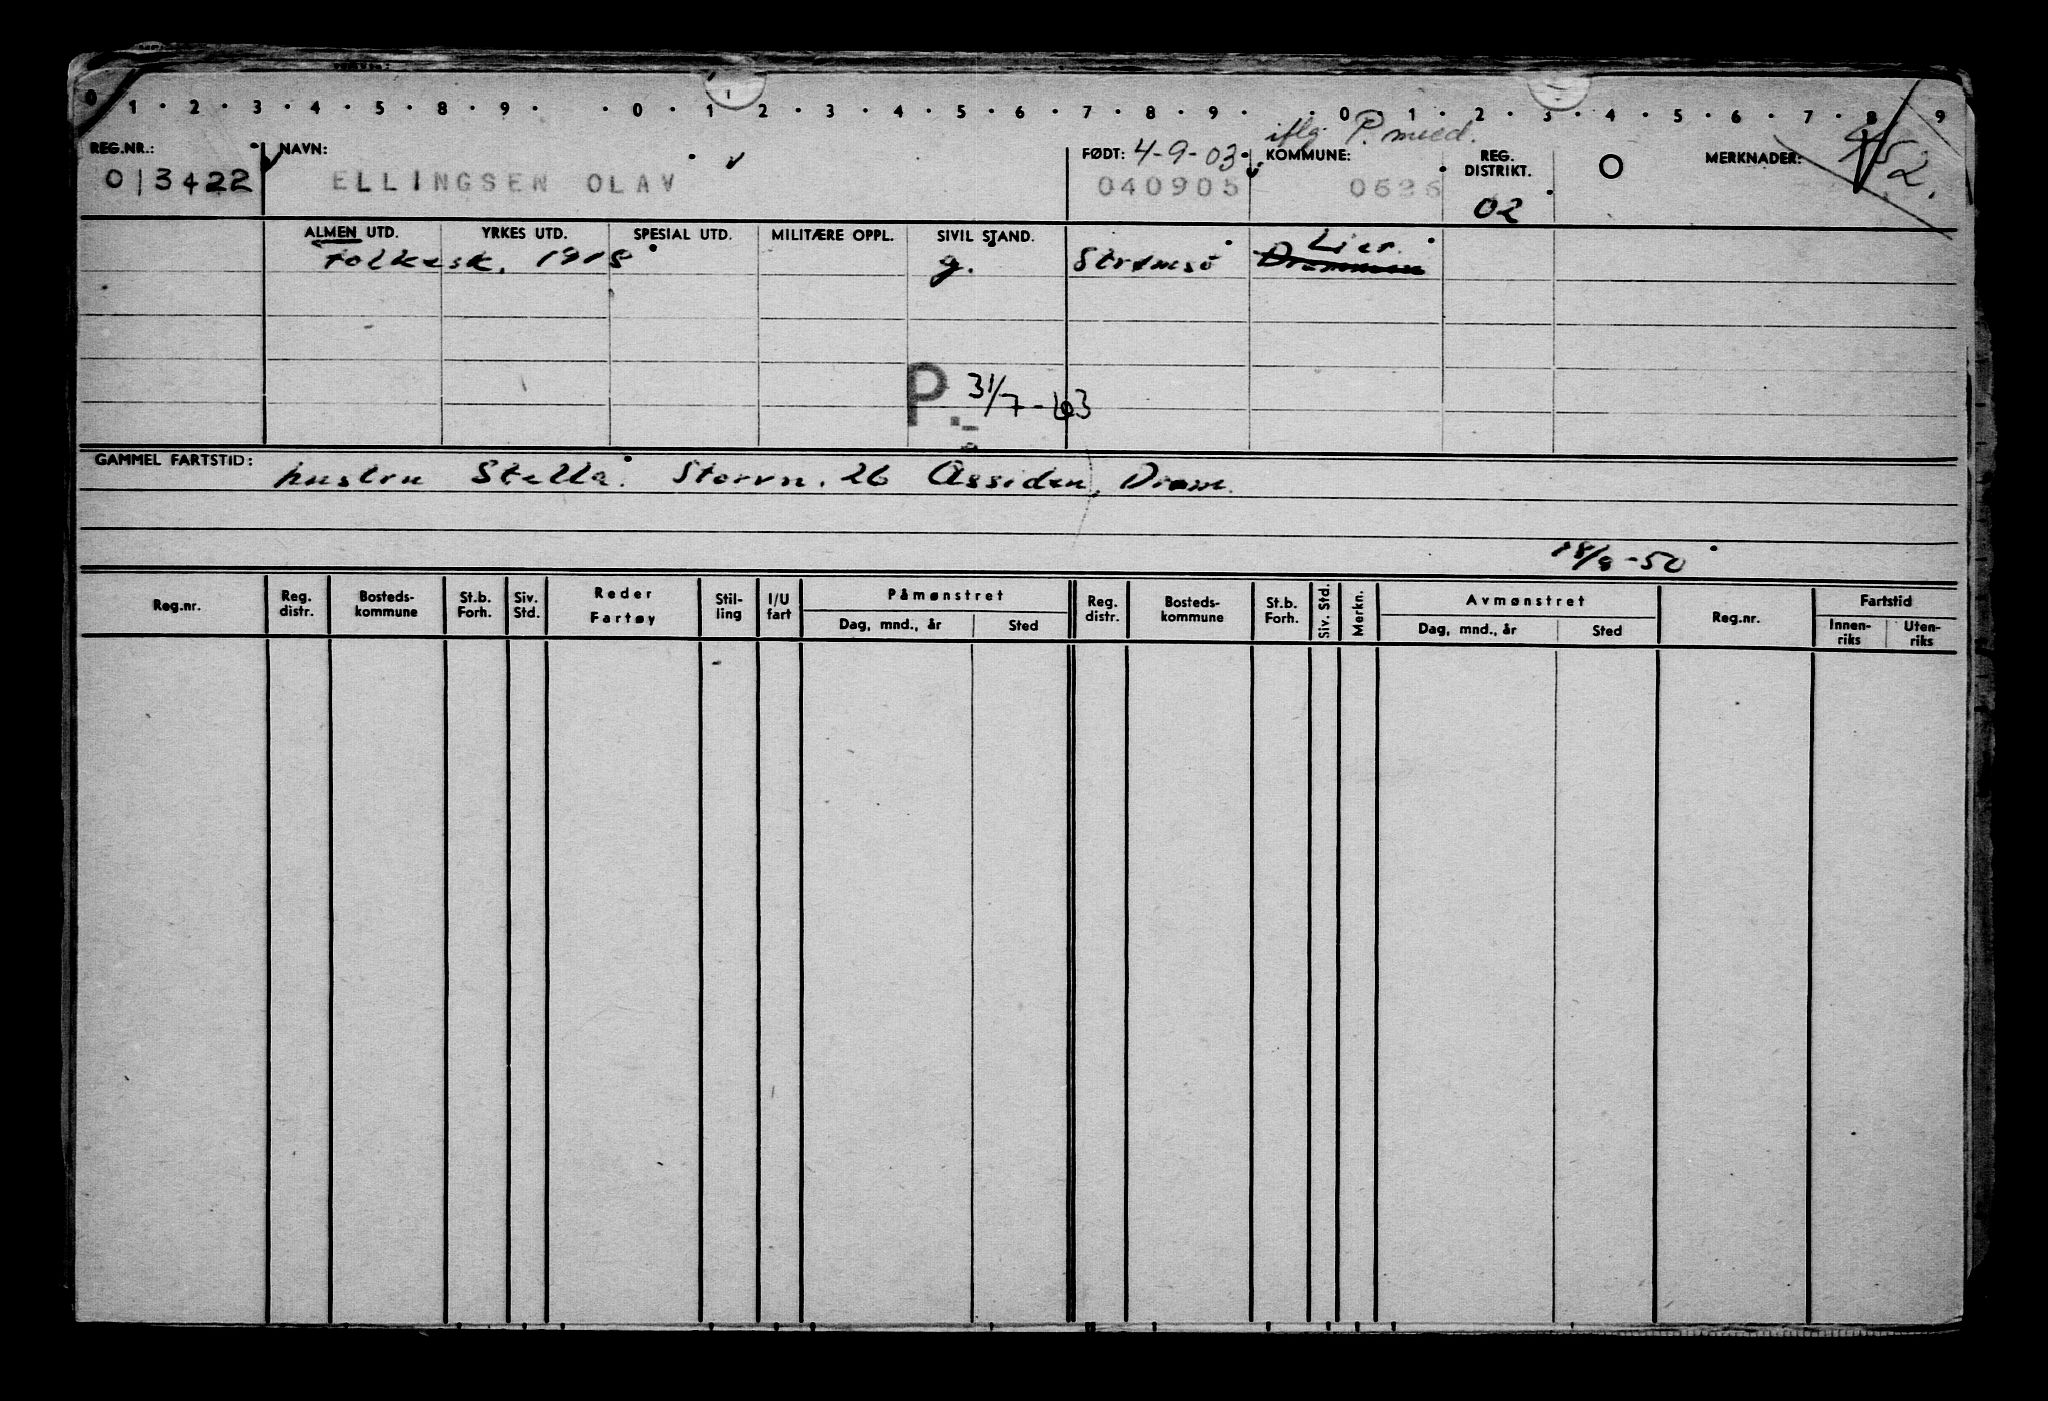 0 1 · 2 · 3 · 4 · 5 · 8 · 9 · · 0 · 1 2 · 3 · 4 · 5 · 6 · 7 · 8 · 9 · · 0 · 1 · 2 · 3 · 4 · 5 · 6 · 7 · 8 · 9
iflg. P. med.
REG.NR.: NAVN: FØDT: 4-9-03 KOMMUNE: REG. DISTRIKT. O MERKNADER: 52.
013422 ELLINGSEN OLAV 040905 0626 02
ALMEN UTD. YRKES UTD. SPESIAL UTD. MILITÆRE OPPL. SIVIL STAND.
Folkesk. 1918 g. Strømsö Drammen Lier
P. 31/7-63
GAMMEL FARTSTID: hustru Stella. Storvn. 26 Åssiden, Dram.
18/8-50
Reg.nr. Reg. distr. Bosteds-kommune St.b. Forh. Siv. Std. Reder Fartøy Stil-ling I/U fart Påmønstret Reg. distr. Bosteds-kommune St.b. Forh. Siv. Std. Merkn. Avmønstret Reg.nr. Fartstid
Dag, mnd., år Sted Dag, mnd., år Sted Innen-riks Uten-riks